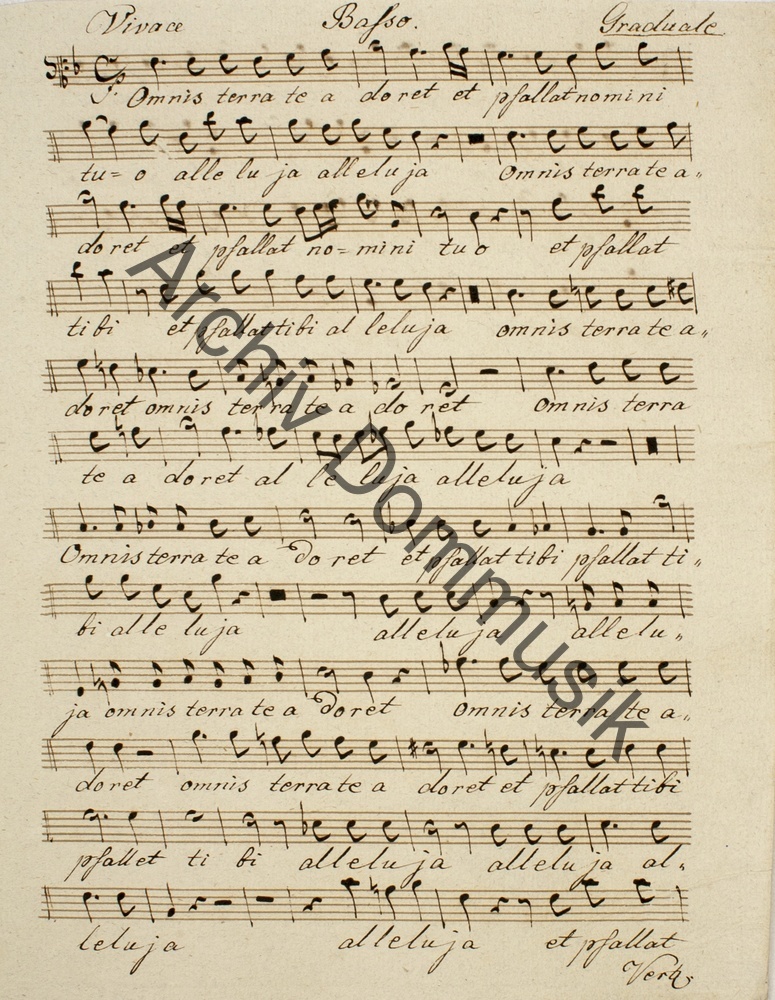 Vivace Basso. Graduale
Omnis terra te a doret et psallat nomini
tu=o alle lu ja alleluja Omnis terra te a„
doret et psallat no=mini tuo et psallat
tibi et psallat tibi al leluja omnis terra te a„
doret omnis terra te a do ret Omnis terra
te a doret al le luja alleluja
Omnis terra te a do ret et psallat tibi psallat ti„
bi alle luja alleluja allelu„
ja omnis terra te a doret omnis terra te a„
doret omnis terra te a doret et psallat tibi
psallet ti bi alleluja alleluja al„
leluja alleluja et psallat
Archiv Dommusik